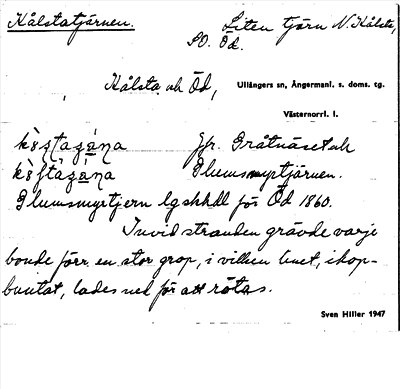 Kålstatjärnen. Liten tjärn N. Kålsta,
SO. Öd.
Kålsta och Öd, Ullångers sn, Ångermanl. s. doms. tg.
Västernorrl. l.
Jfr. Gråtnäset och
Glumsmyrtjärnen.
Glumsmyrtjern lgskhdl för Öd 1860.
Invid stranden grävde varje
bonde förr en stor grop, i vilken linet, ihop-
buntat, lades ned för att rötas.
Sven Hiller 1947